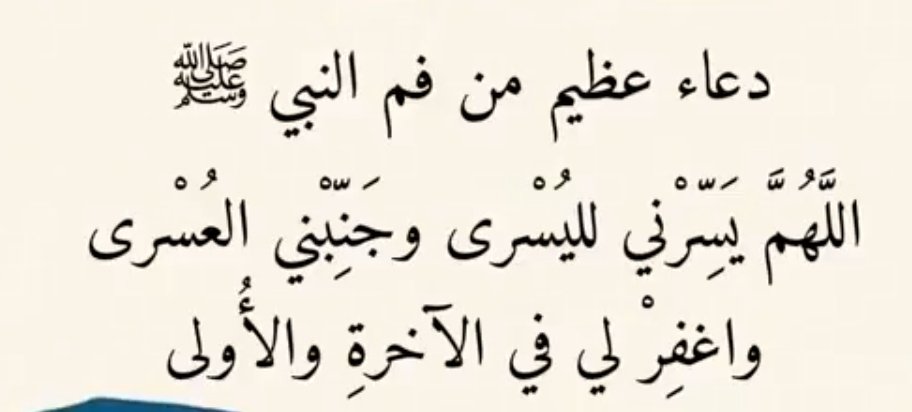 دعاء عظيم من فم النبي ﷺ
اللَّهُمَّ يَسِّرْني لليُسْرى وجَنِّبْني العُسْرى
واغفِرْ لي في الآخرةِ والأُولى